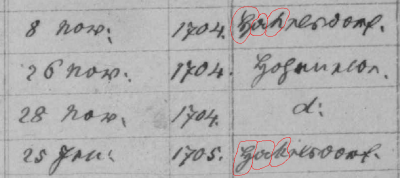 8 Nov: 1704. Hahnsdorf.
26 Nov: 1704.
28 Nov. 1704. d:
25 Jan: 1705. Hahnsdorf.